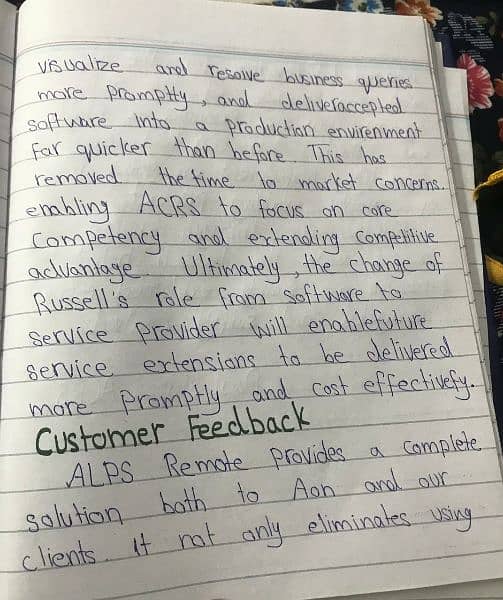 visualize and resolve business queries
more promptty, and deliveraccepted
software into a production envirenment
far quicker than before. This has
removed the time to market concerns.
enabling ACRS to focus on core
Competency and extending competitive
advantage. Ultimately, the change of
Russell's role from software to
service provider will enablefuture
service extensions to be delivered
more promptly and cost effectivefy.
Customer Feedback
ALPS Remote provides a complete
solution both to Aon and our
clients. It not only eliminates using